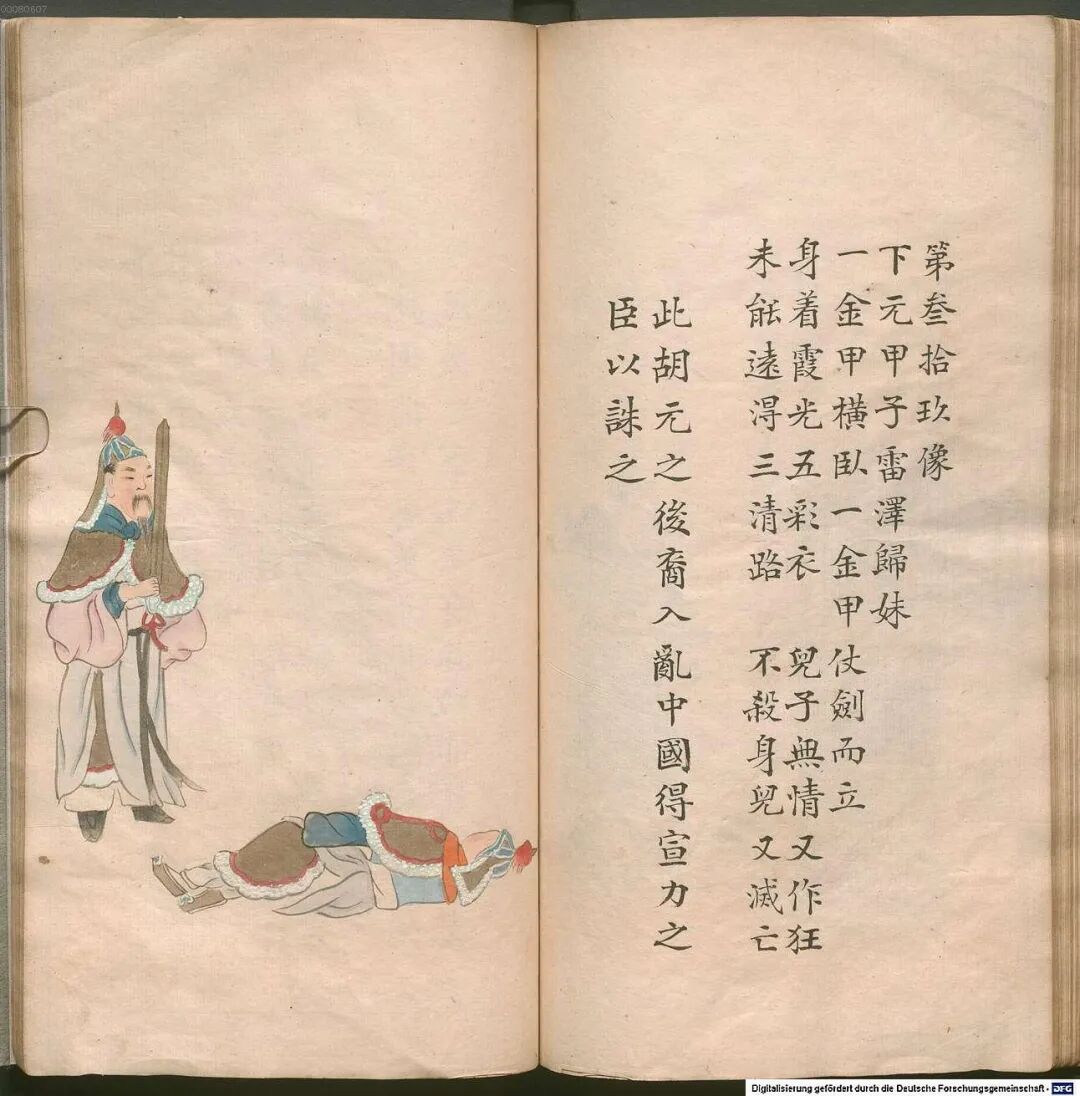 00080607
第叁拾玖像
下元甲子雷澤歸妹
一金甲橫臥一金甲仗劍而立
身着霞光五彩衣 兒子無情又作狂
未能遠得三清路 不殺身兒又滅亡
此胡元之後裔入亂中國得宣力之
臣以誅之
Digitalisierung gefördert durch die Deutsche Forschungsgemeinschaft - DFG